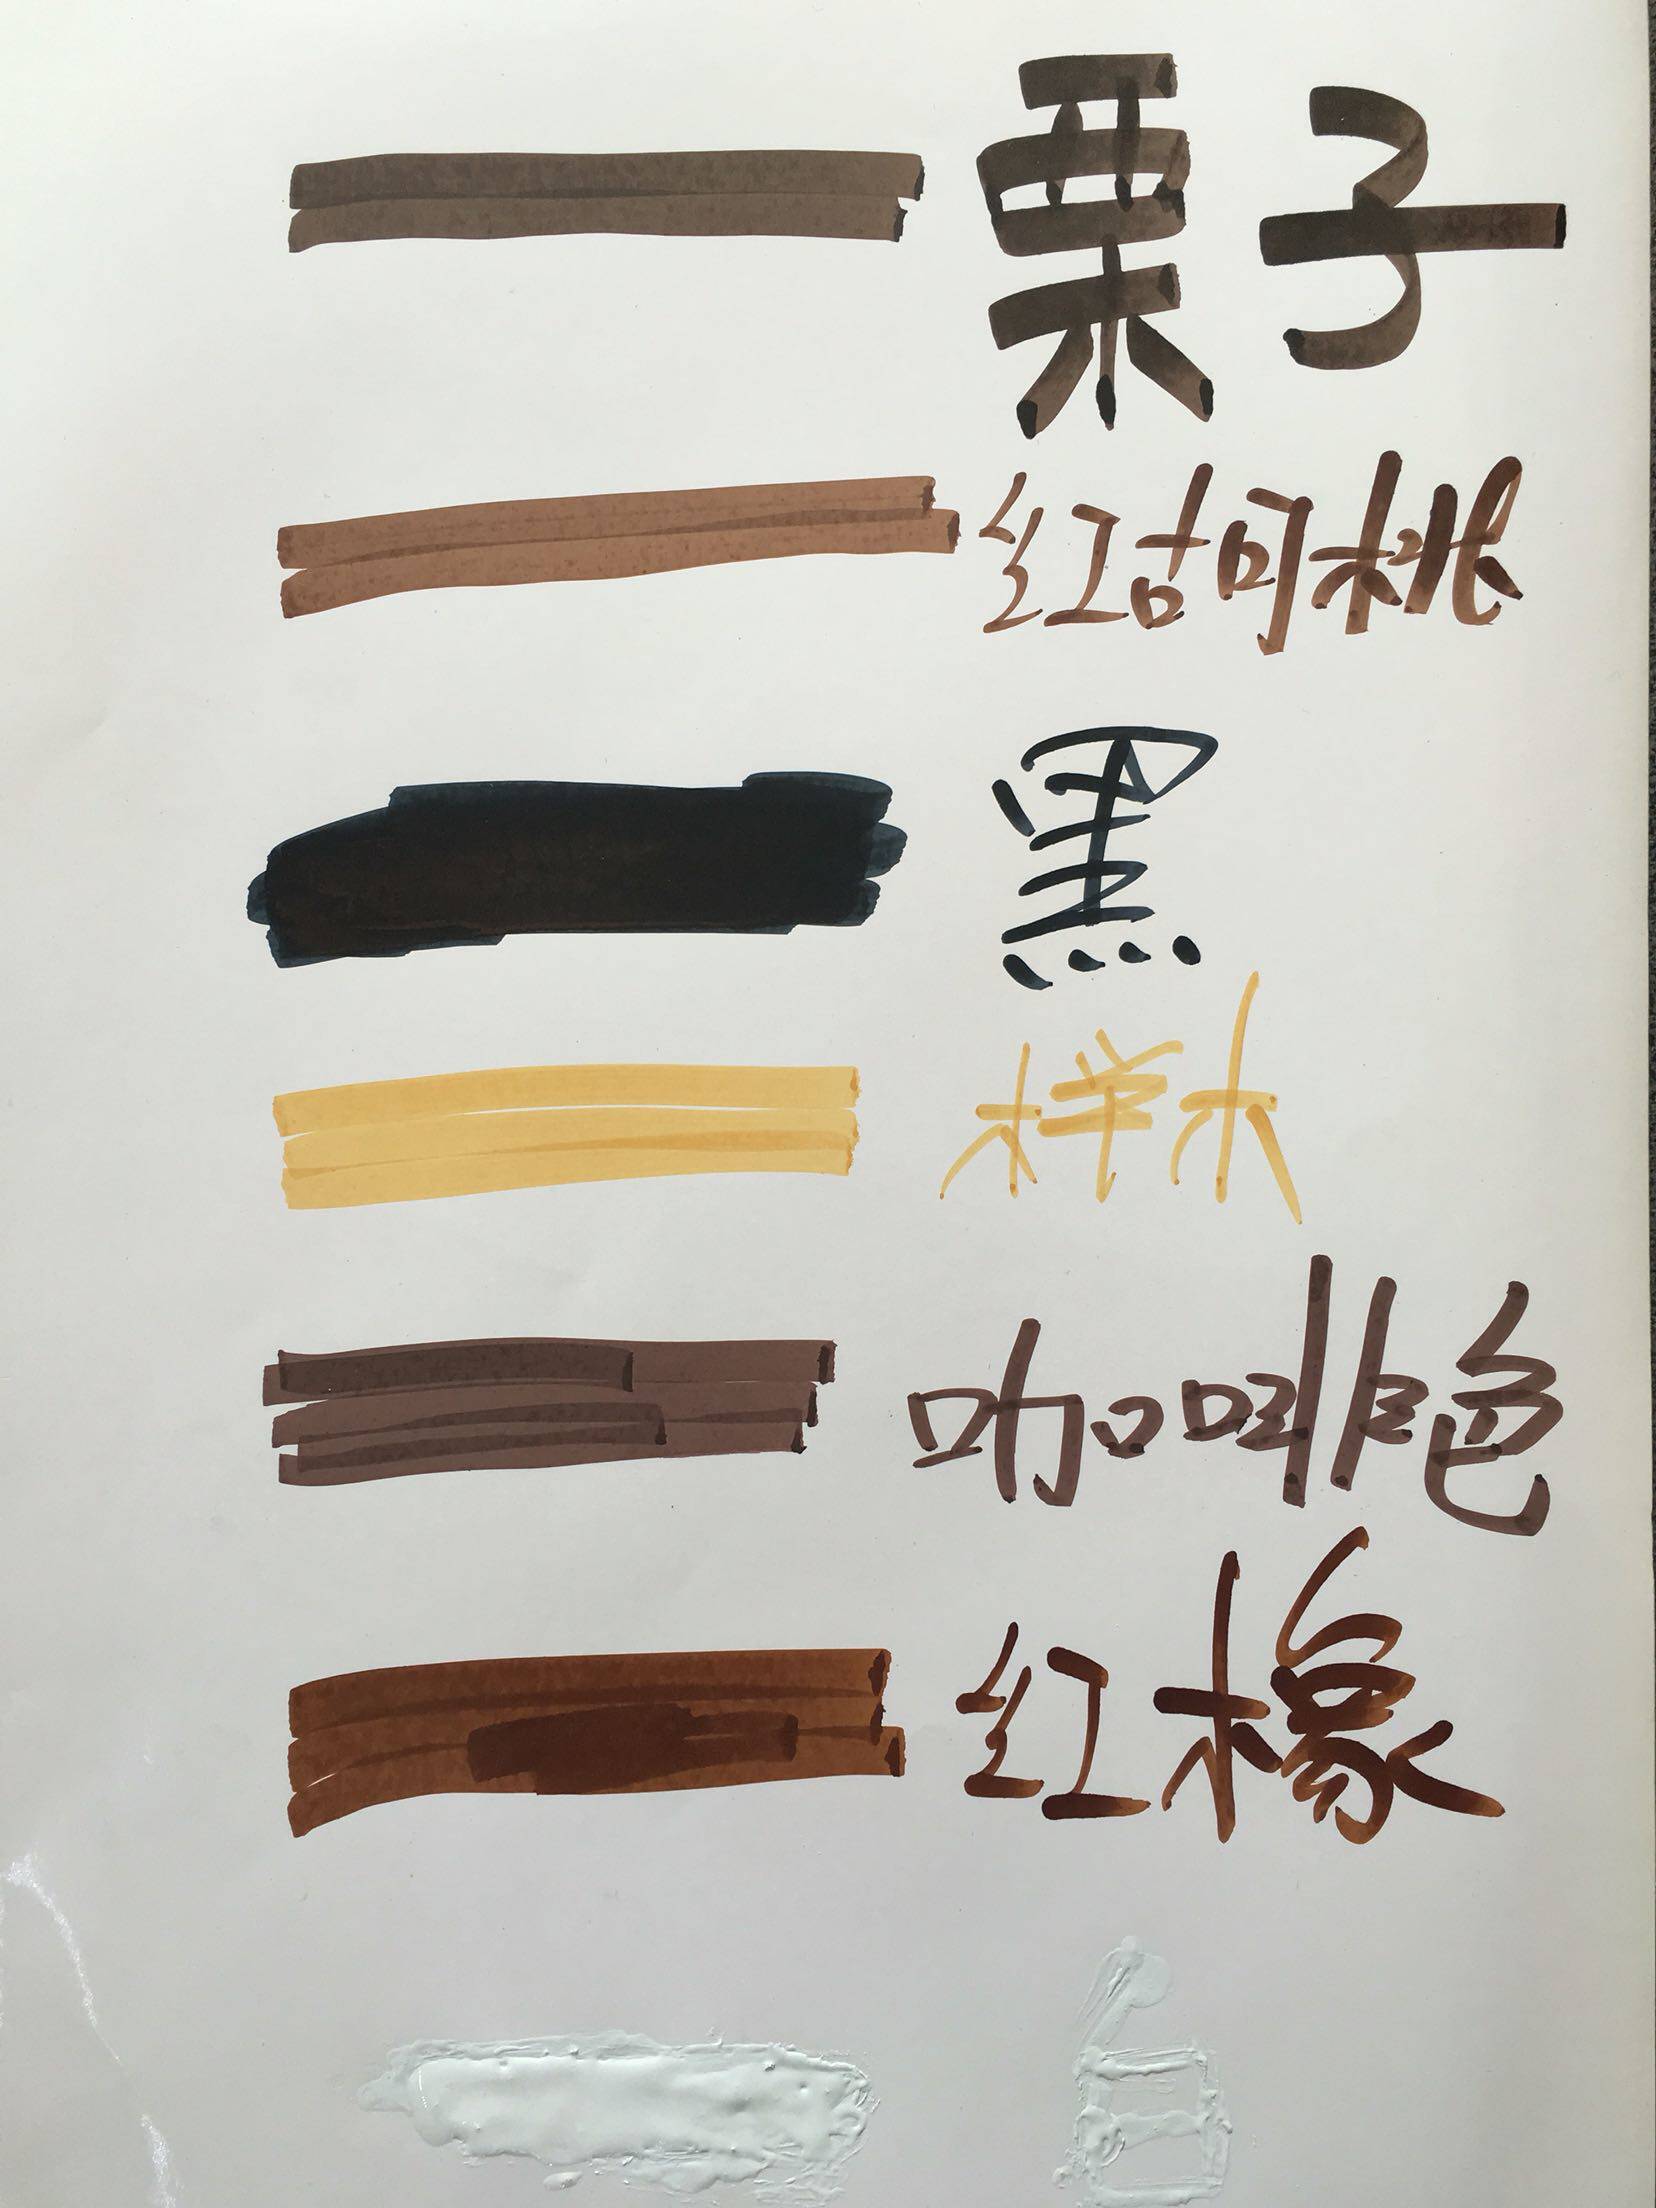 栗子
红胡桃
黑
样木
咖啡色
红橡
白